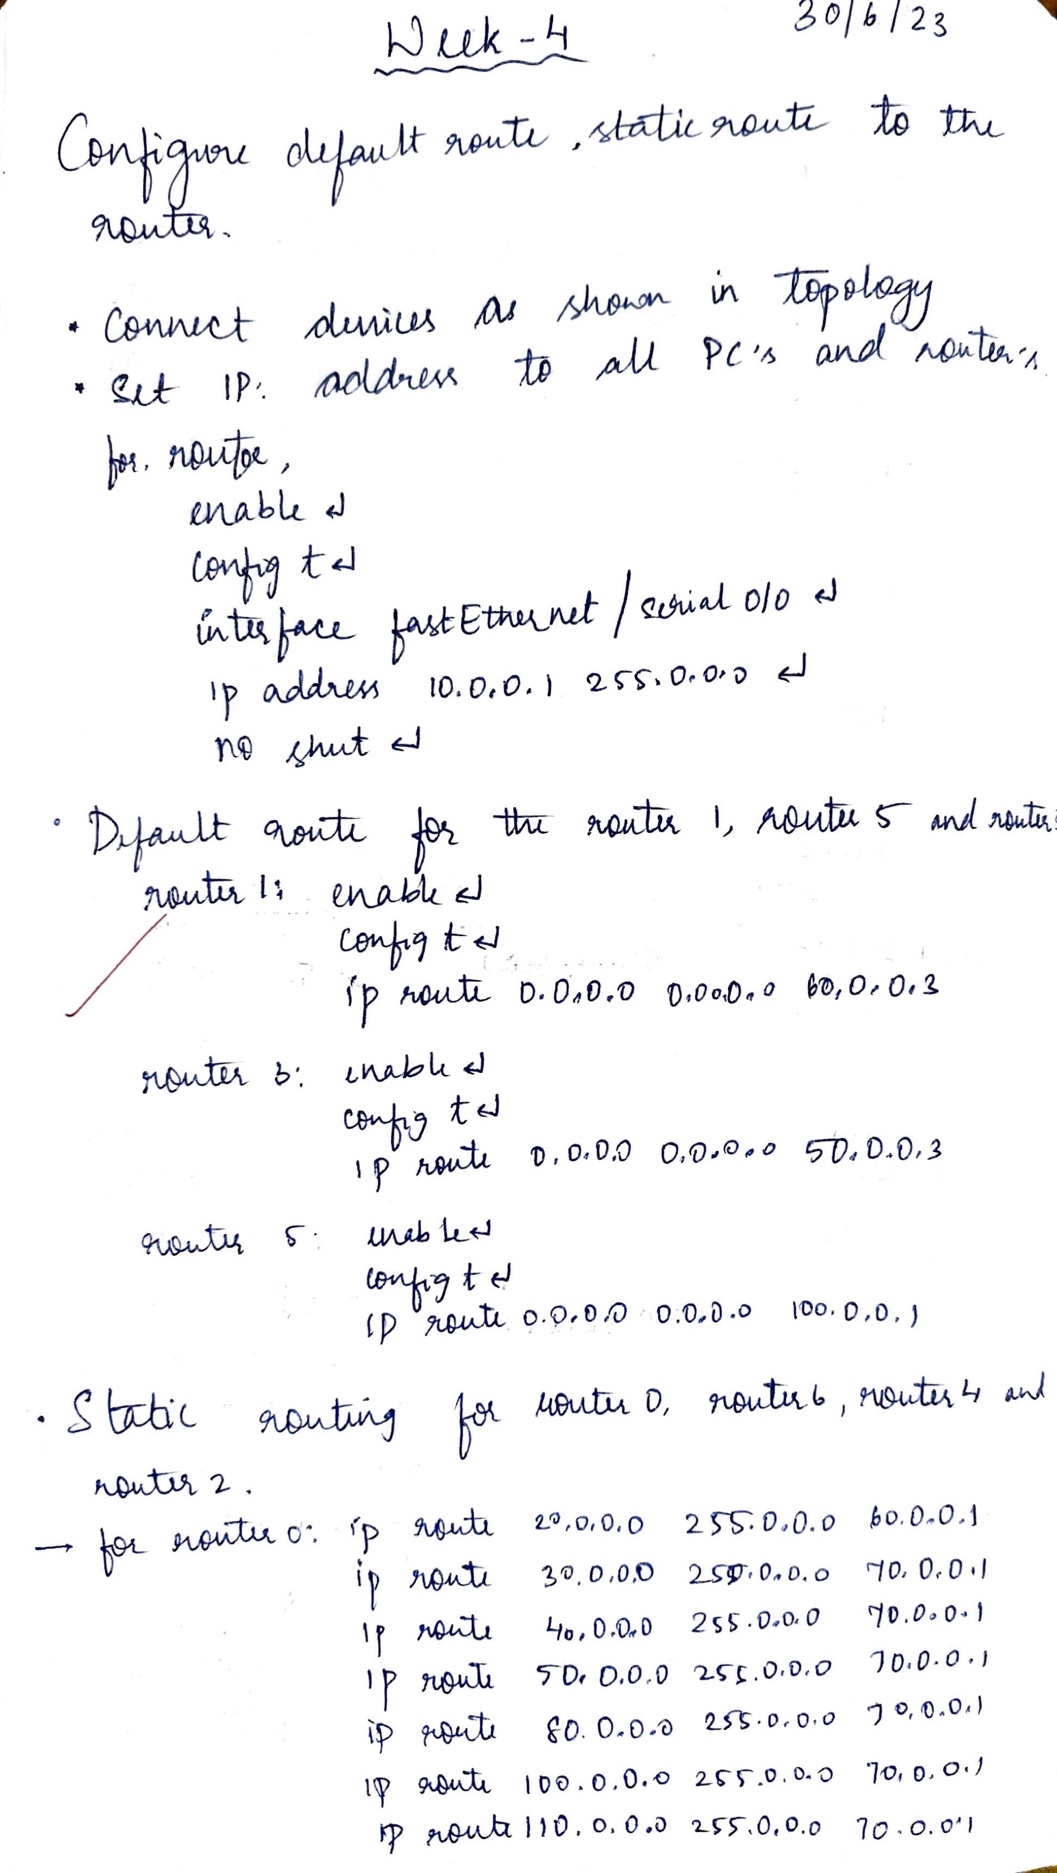 Week-4
30/6/23
Configure default route, static route to the
router.
• Connect devices as shown in topology
• Set IP: address to all PC's and router's
for. router,
enable ↵
config t ↵
interface fastEthernet / serial 0/0 ↵
ip address 10.0.0.1 255.0.0.0 ↵
no shut ↵
• Default route for the router 1, router 5 and router
router 1: enable ↵
config t ↵
ip route 0.0.0.0 0.0.0.0 60.0.0.3
router 3: enable ↵
config t ↵
ip route 0.0.0.0 0.0.0.0 50.0.0.3
router 5: enable ↵
config t ↵
ip route 0.0.0.0 0.0.0.0 100.0.0.1
• Static routing for router 0, router 6, router 4 and
router 2.
→ for router 0: ip route 20.0.0.0 255.0.0.0 60.0.0.1
ip route 30.0.0.0 255.0.0.0 70.0.0.1
ip route 40.0.0.0 255.0.0.0 70.0.0.1
ip route 50.0.0.0 255.0.0.0 70.0.0.1
ip route 80.0.0.0 255.0.0.0 70.0.0.1
ip route 100.0.0.0 255.0.0.0 70.0.0.1
ip route 110.0.0.0 255.0.0.0 70.0.0.1